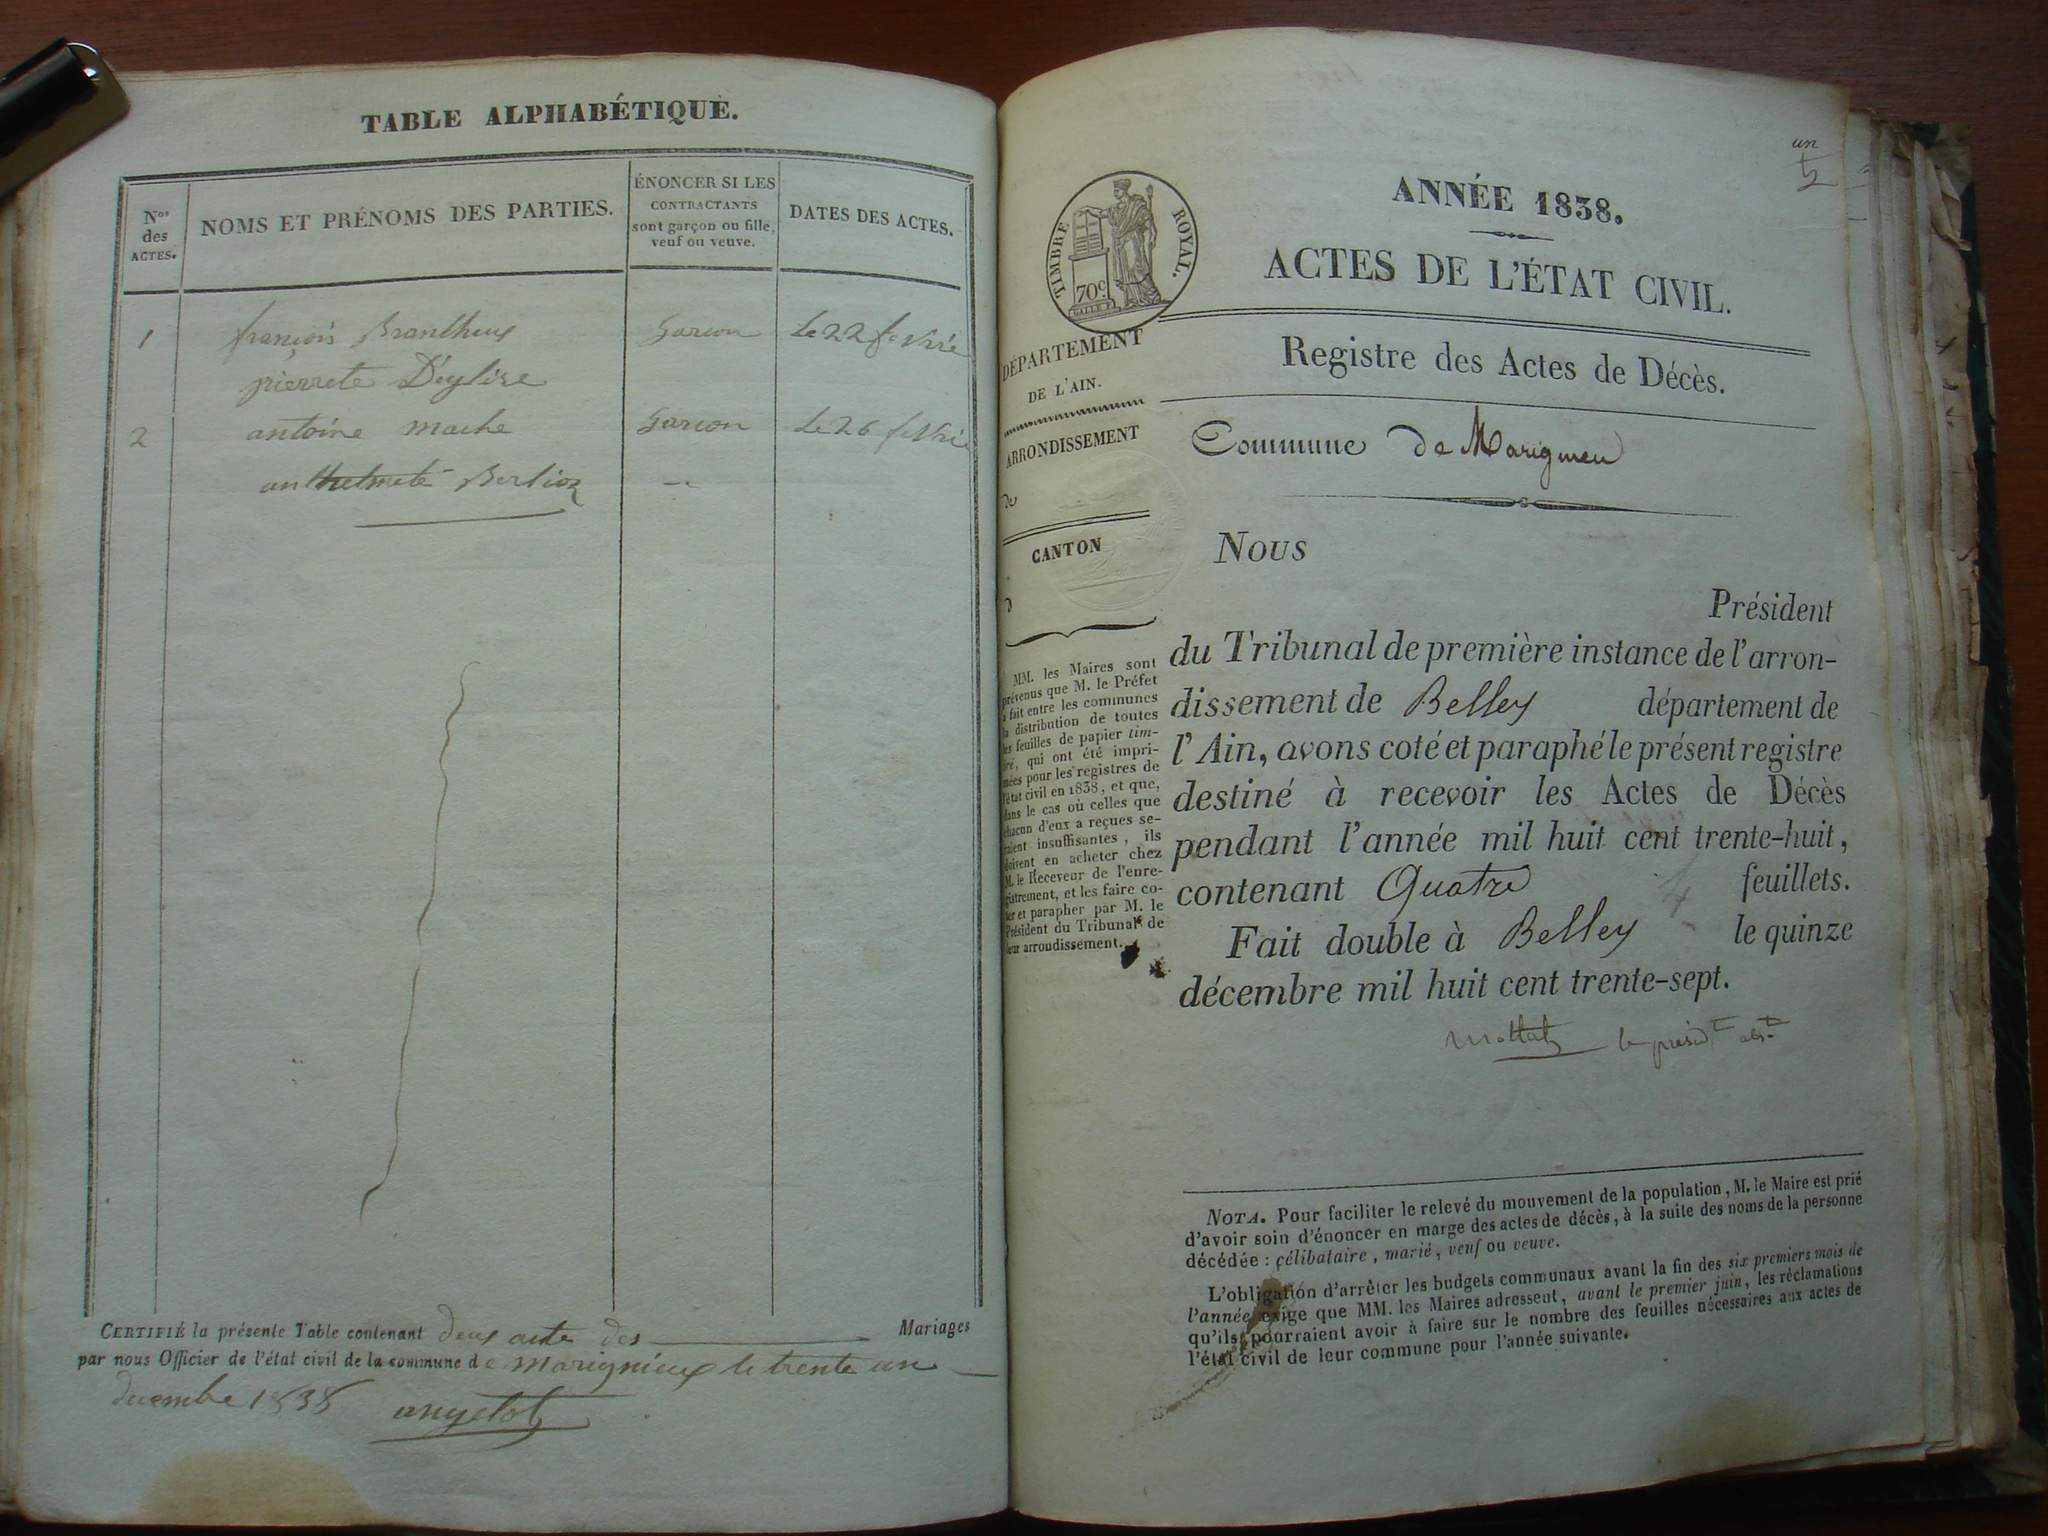 TABLE ALPHABÉTIQUE.
Nos des ACTES.
NOMS ET PRÉNOMS DES PARTIES.
ÉNONCER SI LES
CONTRACTANTS
sont garçon ou fille,
veuf ou veuve.
DATES DES ACTES.
1 françois Garcon Le 22 fevrie
pierrete D'eglise
2 antoine mache Garcon Le 26 fevrie
anthelmete Berlioz
CERTIFIÉ la présente Table contenant deux acte des Mariages
par nous Officier de l'état civil de la commune de marignieux le trente un
decembre 1838
un
ANNÉE 1838.
ACTES DE L'ÉTAT CIVIL.
TIMBRE ROYAL.
70c
DÉPARTEMENT
DE L'AIN.
ARRONDISSEMENT
de
CANTON
d
MM. les Maires sont
prévenus que M. le Préfet
a fait entre les communes
la distribution de toutes
les feuilles de papier tim-
bré, qui ont été impri-
mées pour les registres de
l'état civil en 1838, et que,
dans le cas où celles que
chacun d'eux a reçues se-
raient insuffisantes, ils
doivent en acheter chez
M. le Receveur de l'enre-
gistrement, et les faire co-
ter et parapher par M. le
Président du Tribunal de
leur arrondissement.
Registre des Actes de Décès.
Commune de Marigneu
Nous
Président
du Tribunal de première instance de l'arron-
dissement de Belley département de
l'Ain, avons coté et paraphé le présent registre
destiné à recevoir les Actes de Décès
pendant l'année mil huit cent trente-huit,
contenant Quatre feuillets.
Fait double à Belley le quinze
décembre mil huit cent trente-sept.
NOTA. Pour faciliter le relevé du mouvement de la population, M. le Maire est prié
d'avoir soin d'énoncer en marge des actes de décès, à la suite des noms de la personne
décédée : célibataire, marié, veuf ou veuve.
L'obligation d'arrêter les budgets communaux avant la fin des six premiers mois de
l'année exige que MM. les Maires adressent, avant le premier juin, les réclamations
qu'ils pourraient avoir à faire sur le nombre des feuilles nécessaires aux actes de
l'état civil de leur commune pour l'année suivante.